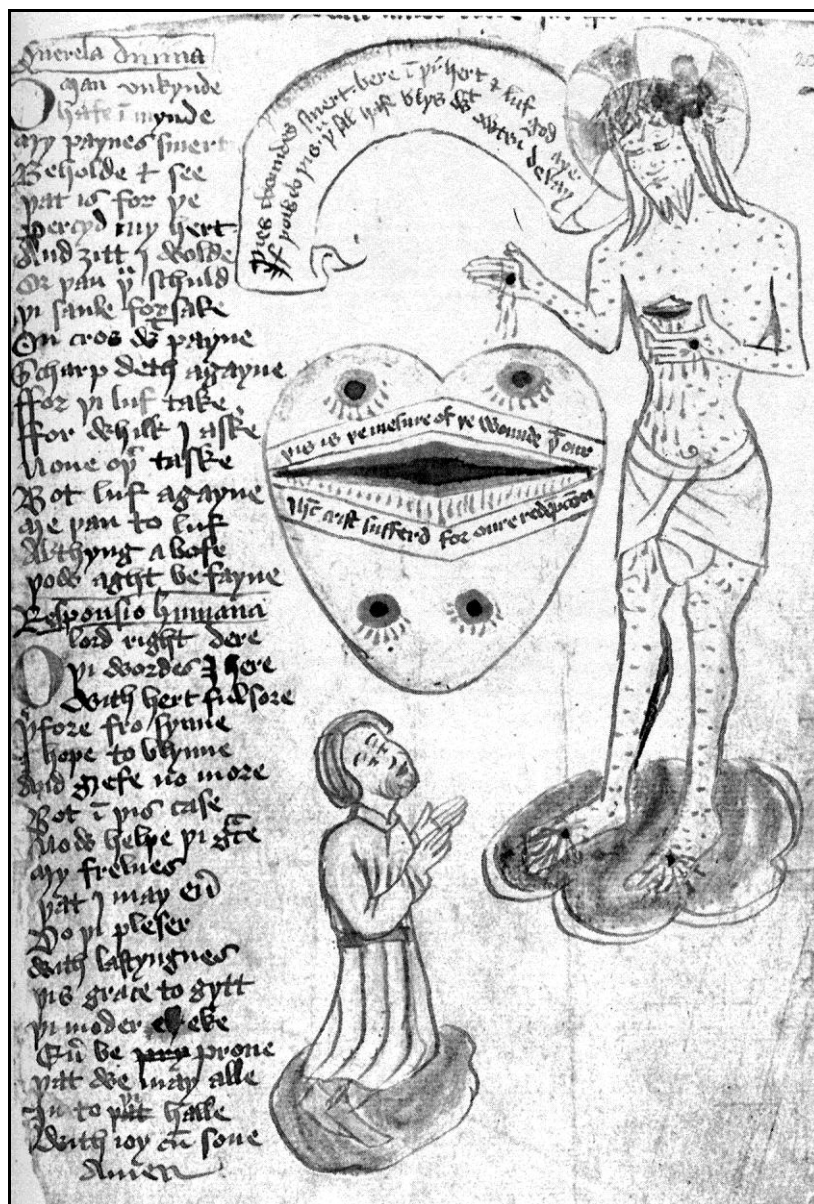 Querela diuina
O man vnkynde
hafe ī mynde
my paynes smert
Beholde & see
þat is for þe
percyd my hert
And ȝitt i wolde
Or þan þᵘ schuld
þi saule forsake
On cros wᵗ payne
Scharp deth agayne
ffor þi luf take
ffor whilk i aske
None oþʳ taske
Bot luf agayne
me þan to luf
Althyng a bofe
þow aght be fayne
Responsio humana
O lord right dere
þi wordes I here
With hert ful sore
þʳfore fro synne
I hope to blynne
And grefe no more
Bot ī þis case
Now helpe þi gᵃce
my frelnes
þat i may euʳ
Do þi pleser
With lastyngnes
þis grace to gytt
þi moder eke
Euʳ be prone
þat we may alle
In to þat halle
With ioy cū sone
Amen
þies woundes smert bere ī þi hert & luf god aye
If þow do þis þᵘ sal hafe blys wᵗ owten delay
þis is þe mesure of þe wounde þᵗ our
Ihc crist sufferd for oure redēpcion
20